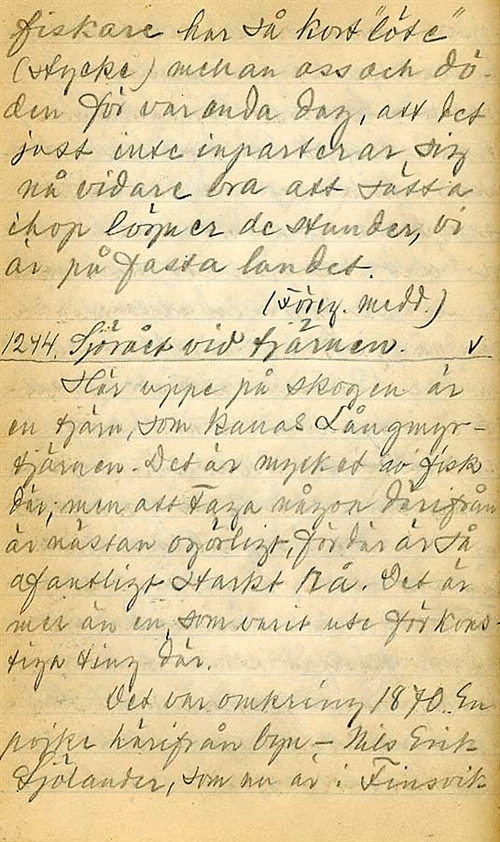 fiskare har så kort "löte"
(stycke) mellan oss och dö-
den för varenda dag, att det
just inte inparterar sig
nå vidare bra att sätta
ihop lögner de stunder, vi
är på fasta landet.
(Föreg. medd.)
1244. Sjörået vid tjärnen. √
Här uppe på skogen är
en tjärn, som kallas Långmyr-
tjärnen. Det är mycket av fisk
där, men att taga någon därifrån
är nästan ogörligt, för där är så
afantligt starkt rå. Det är
mer än en, som varit ute för kons-
tiga ting där.
Det var omkring 1870. En
pojke härifrån byn – Nils Erik
Sjölander, som nu är i Finsvik